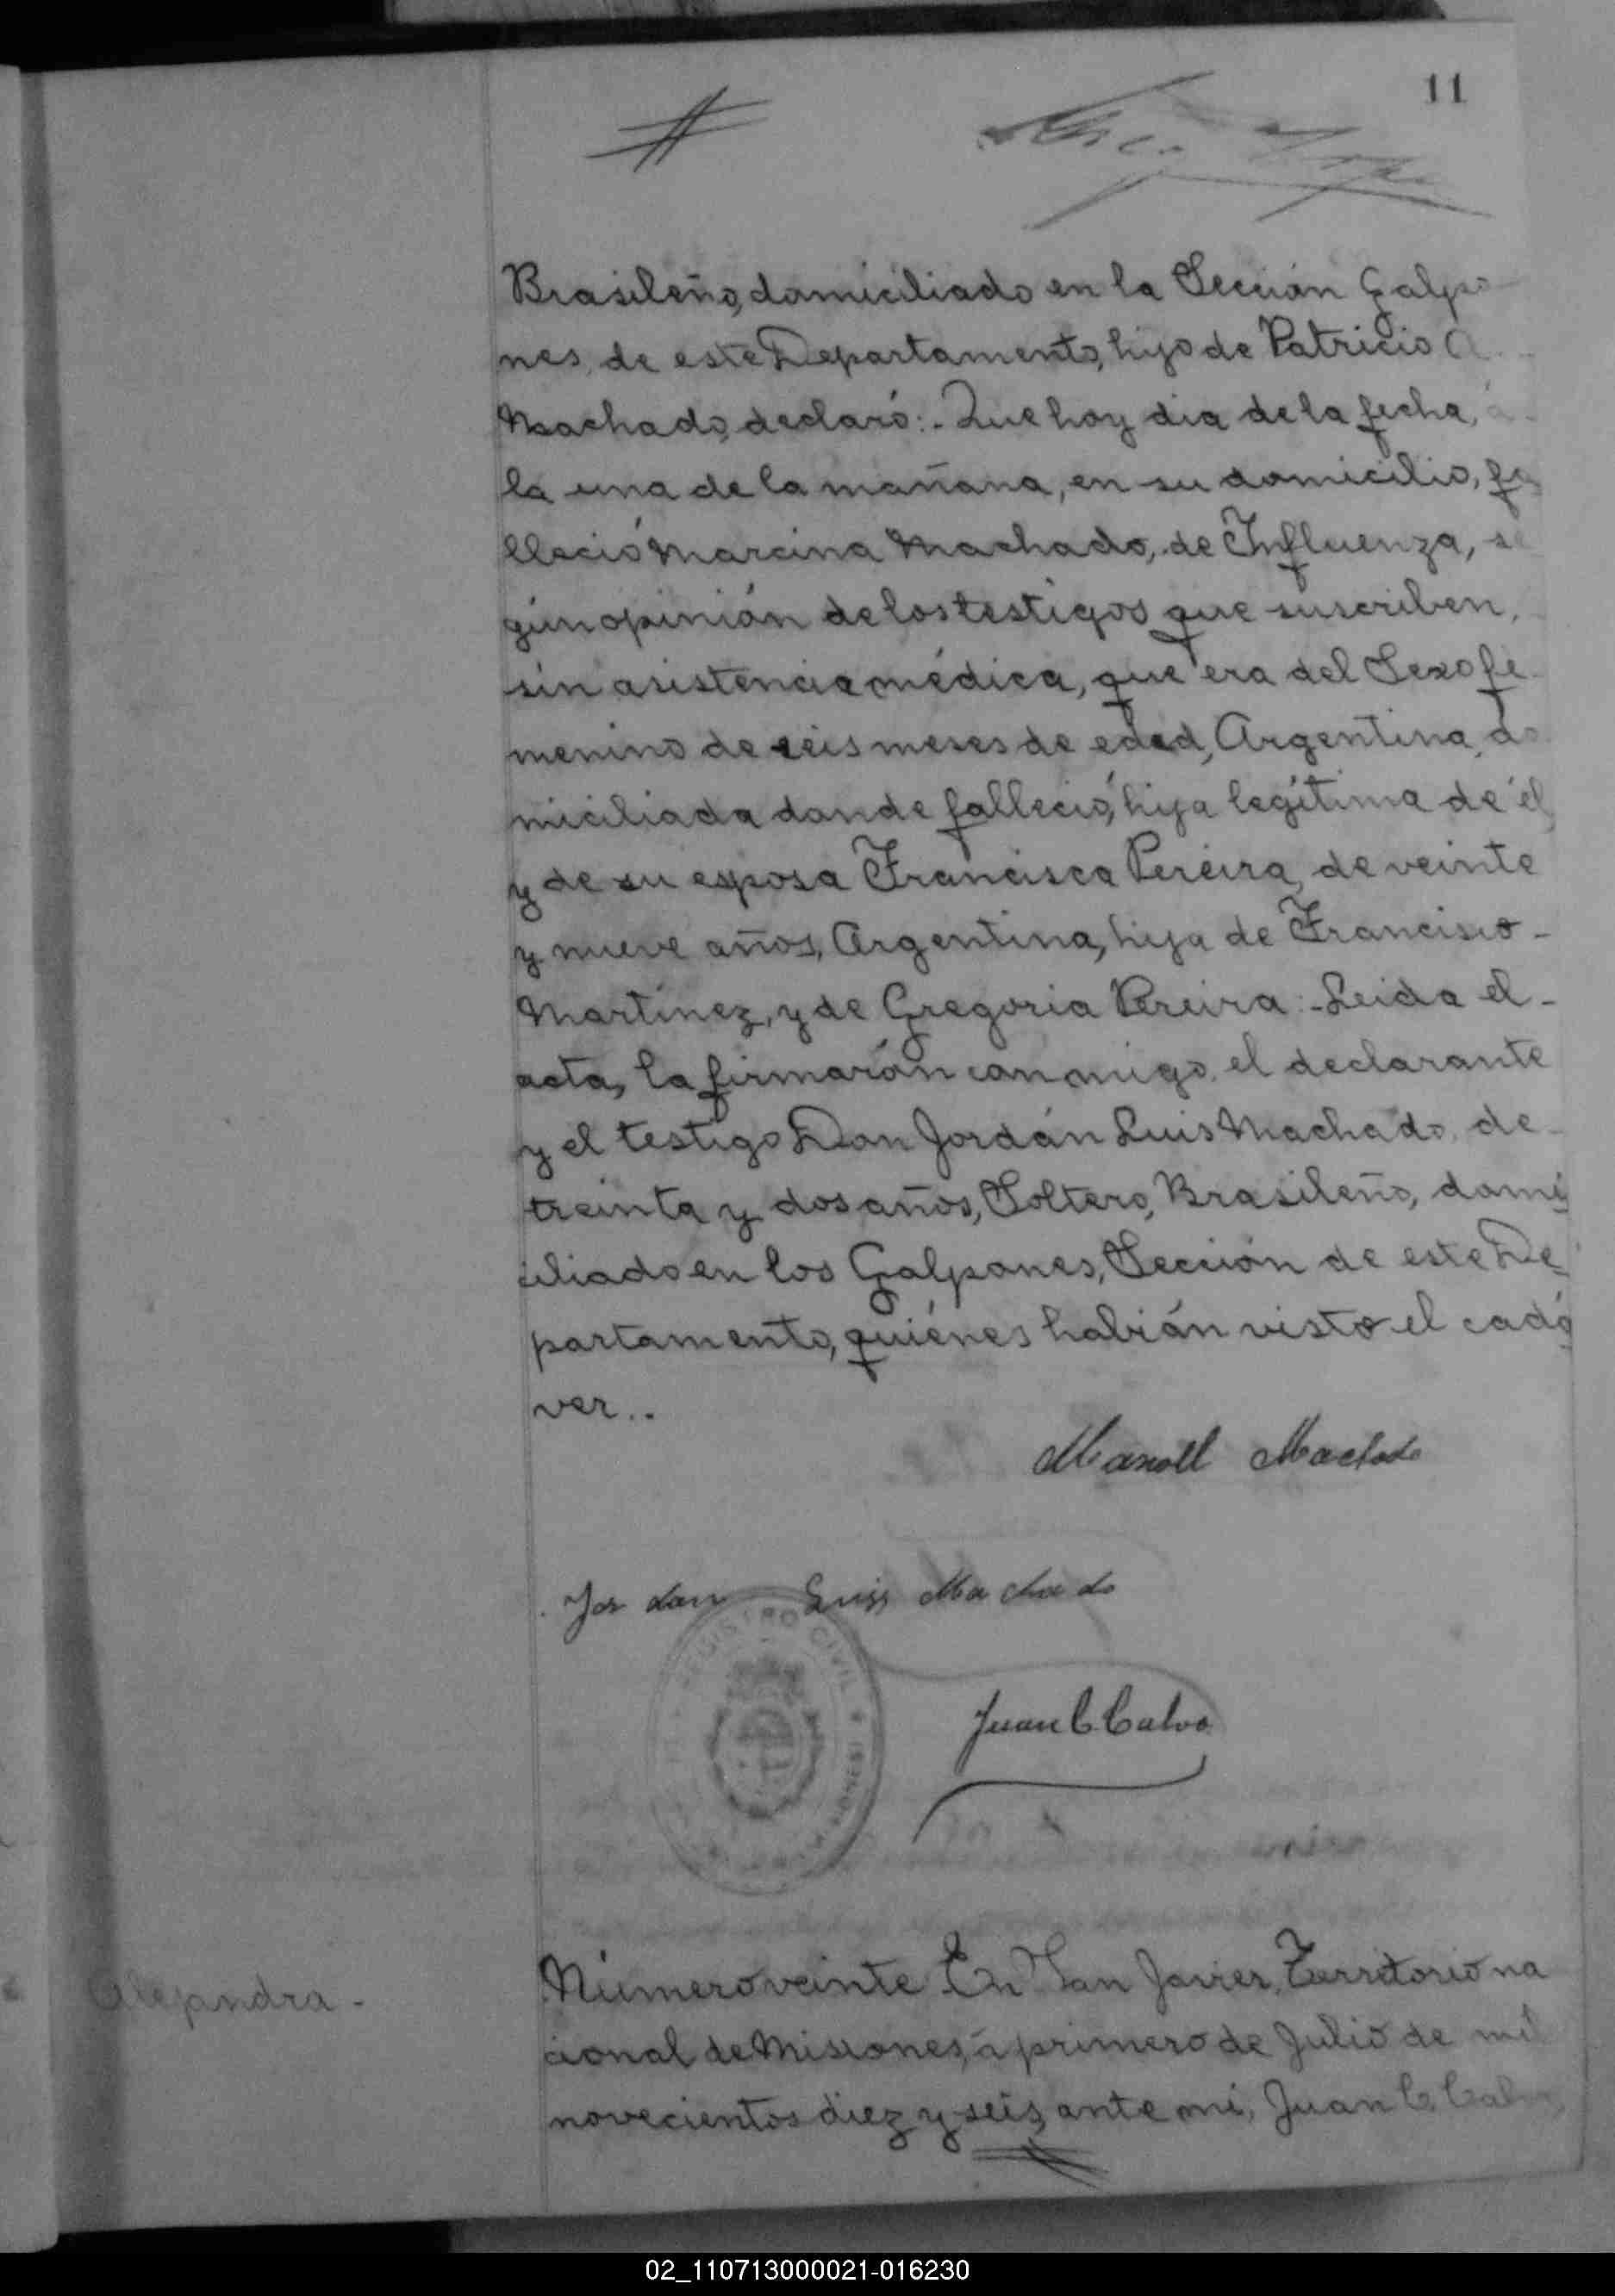 11
Brasileño, domiciliado en la Sección Galpo
nes, de este Departamento, hijo de Patricio A.
Machado, declaró:- Que hoy dia de la fecha, á
la una de la mañana, en su domicilio, fa
lleció Marcina Machado, de Influenza, se
gún opinián de los testigos que suscriben,
sin asistencia médica, que era del Sexo fe
menino de seis meses de edad, Argentina, do
miciliada donde falleció, hija legítima de él
y de su esposa Francisca Pereira, de veinte
y nueve años, Argentina, hija de Francisco -
Martínez, y de Gregoria Pereira:- Leida el -
acta, la firmarón conmigo, el declarante
y el testigo Don Jordán Luis Machado, de -
treinta y dos años, Soltero, Brasileño, domi
ciliado en los Galpones, Sección de este De
partamento, quiénes habián visto el cadá
ver..
Manoll Machado
Jordan Luis Machado
REGISTRO CIVIL
MISIONES
Juan C Calvo
Alejandra -
Número veinte En San Javier, Territorio na
cional de Misiones, á primero de Julio de mil
novecientos diez y seis, ante mi, Juan C. Calvo
02_110713000021-016230